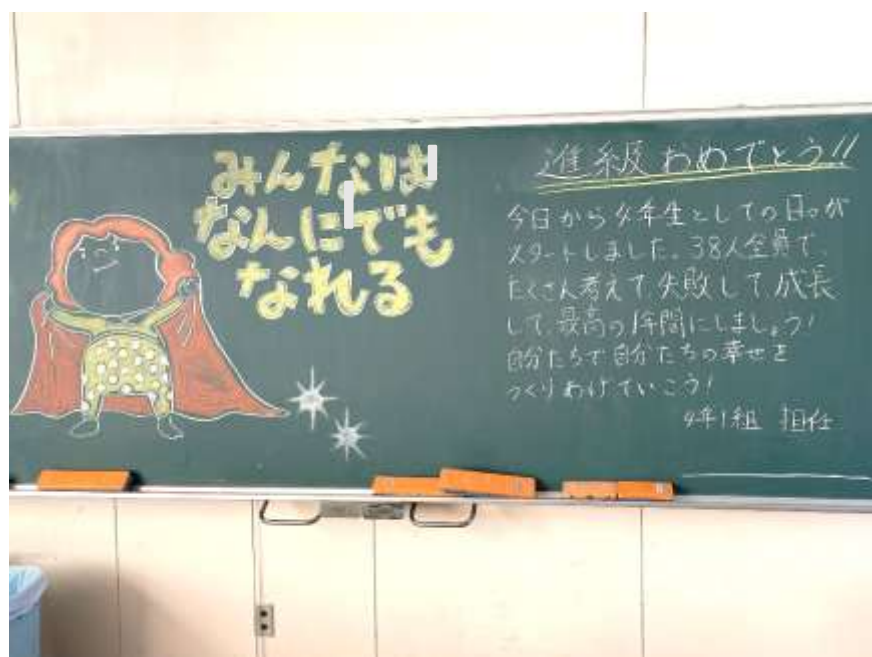 みんなは
なんにでも
なれる
進級おめでとう!!
今日から4年生としての日々が
スタートしました。38人全員で
たくさん考えて、失敗して、成長
して、最高の1年間にしましょう!
自分たちで自分たちの幸せを
つくりあげていこう!
4年1組 担任